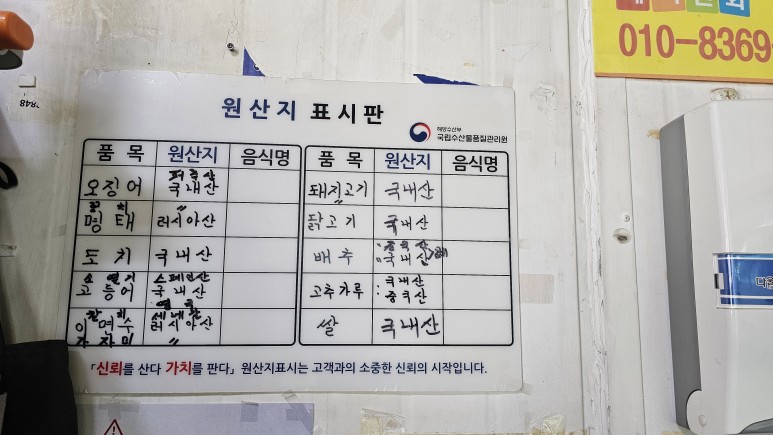 010-8369
원산지 표시판
해양수산부
국립수산물품질관리원
품 목 원산지 음식명
오징어 국내산
명태 러시아산
도치 국내산
고등어 스페인산 국내산
이면수 러시아산
가자미 〃
품 목 원산지 음식명
돼지고기 국내산
닭고기 국내산
배추 중국산 국내산
고추가루 : 국내산 중국산
쌀 국내산
「신뢰를 산다 가치를 판다」 원산지표시는 고객과의 소중한 신뢰의 시작입니다.